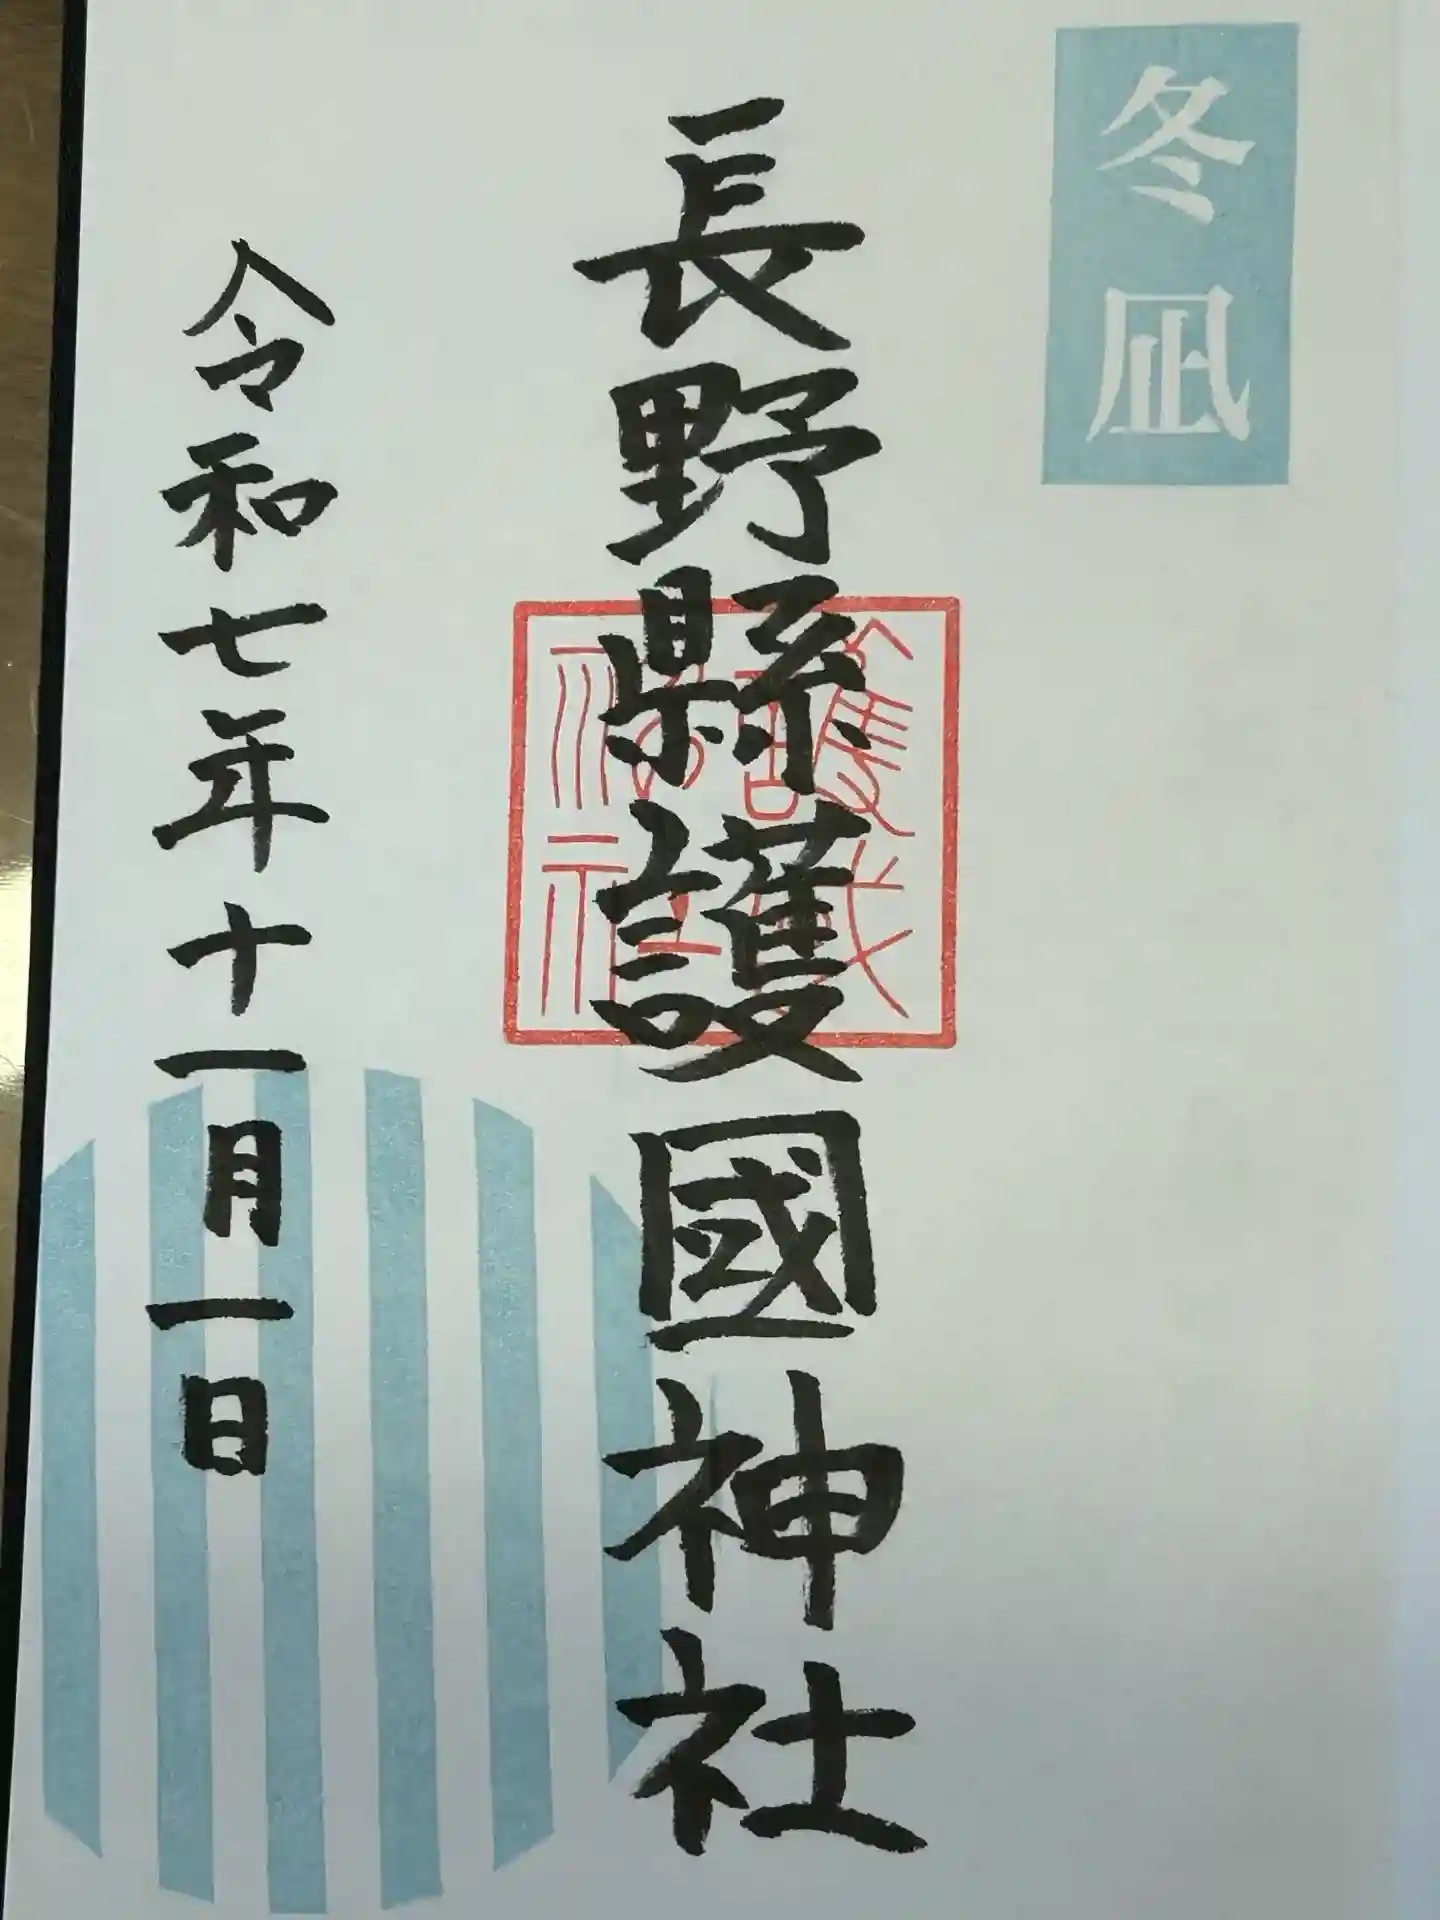 冬凪
長野縣護國神社
令和七年十一月一日